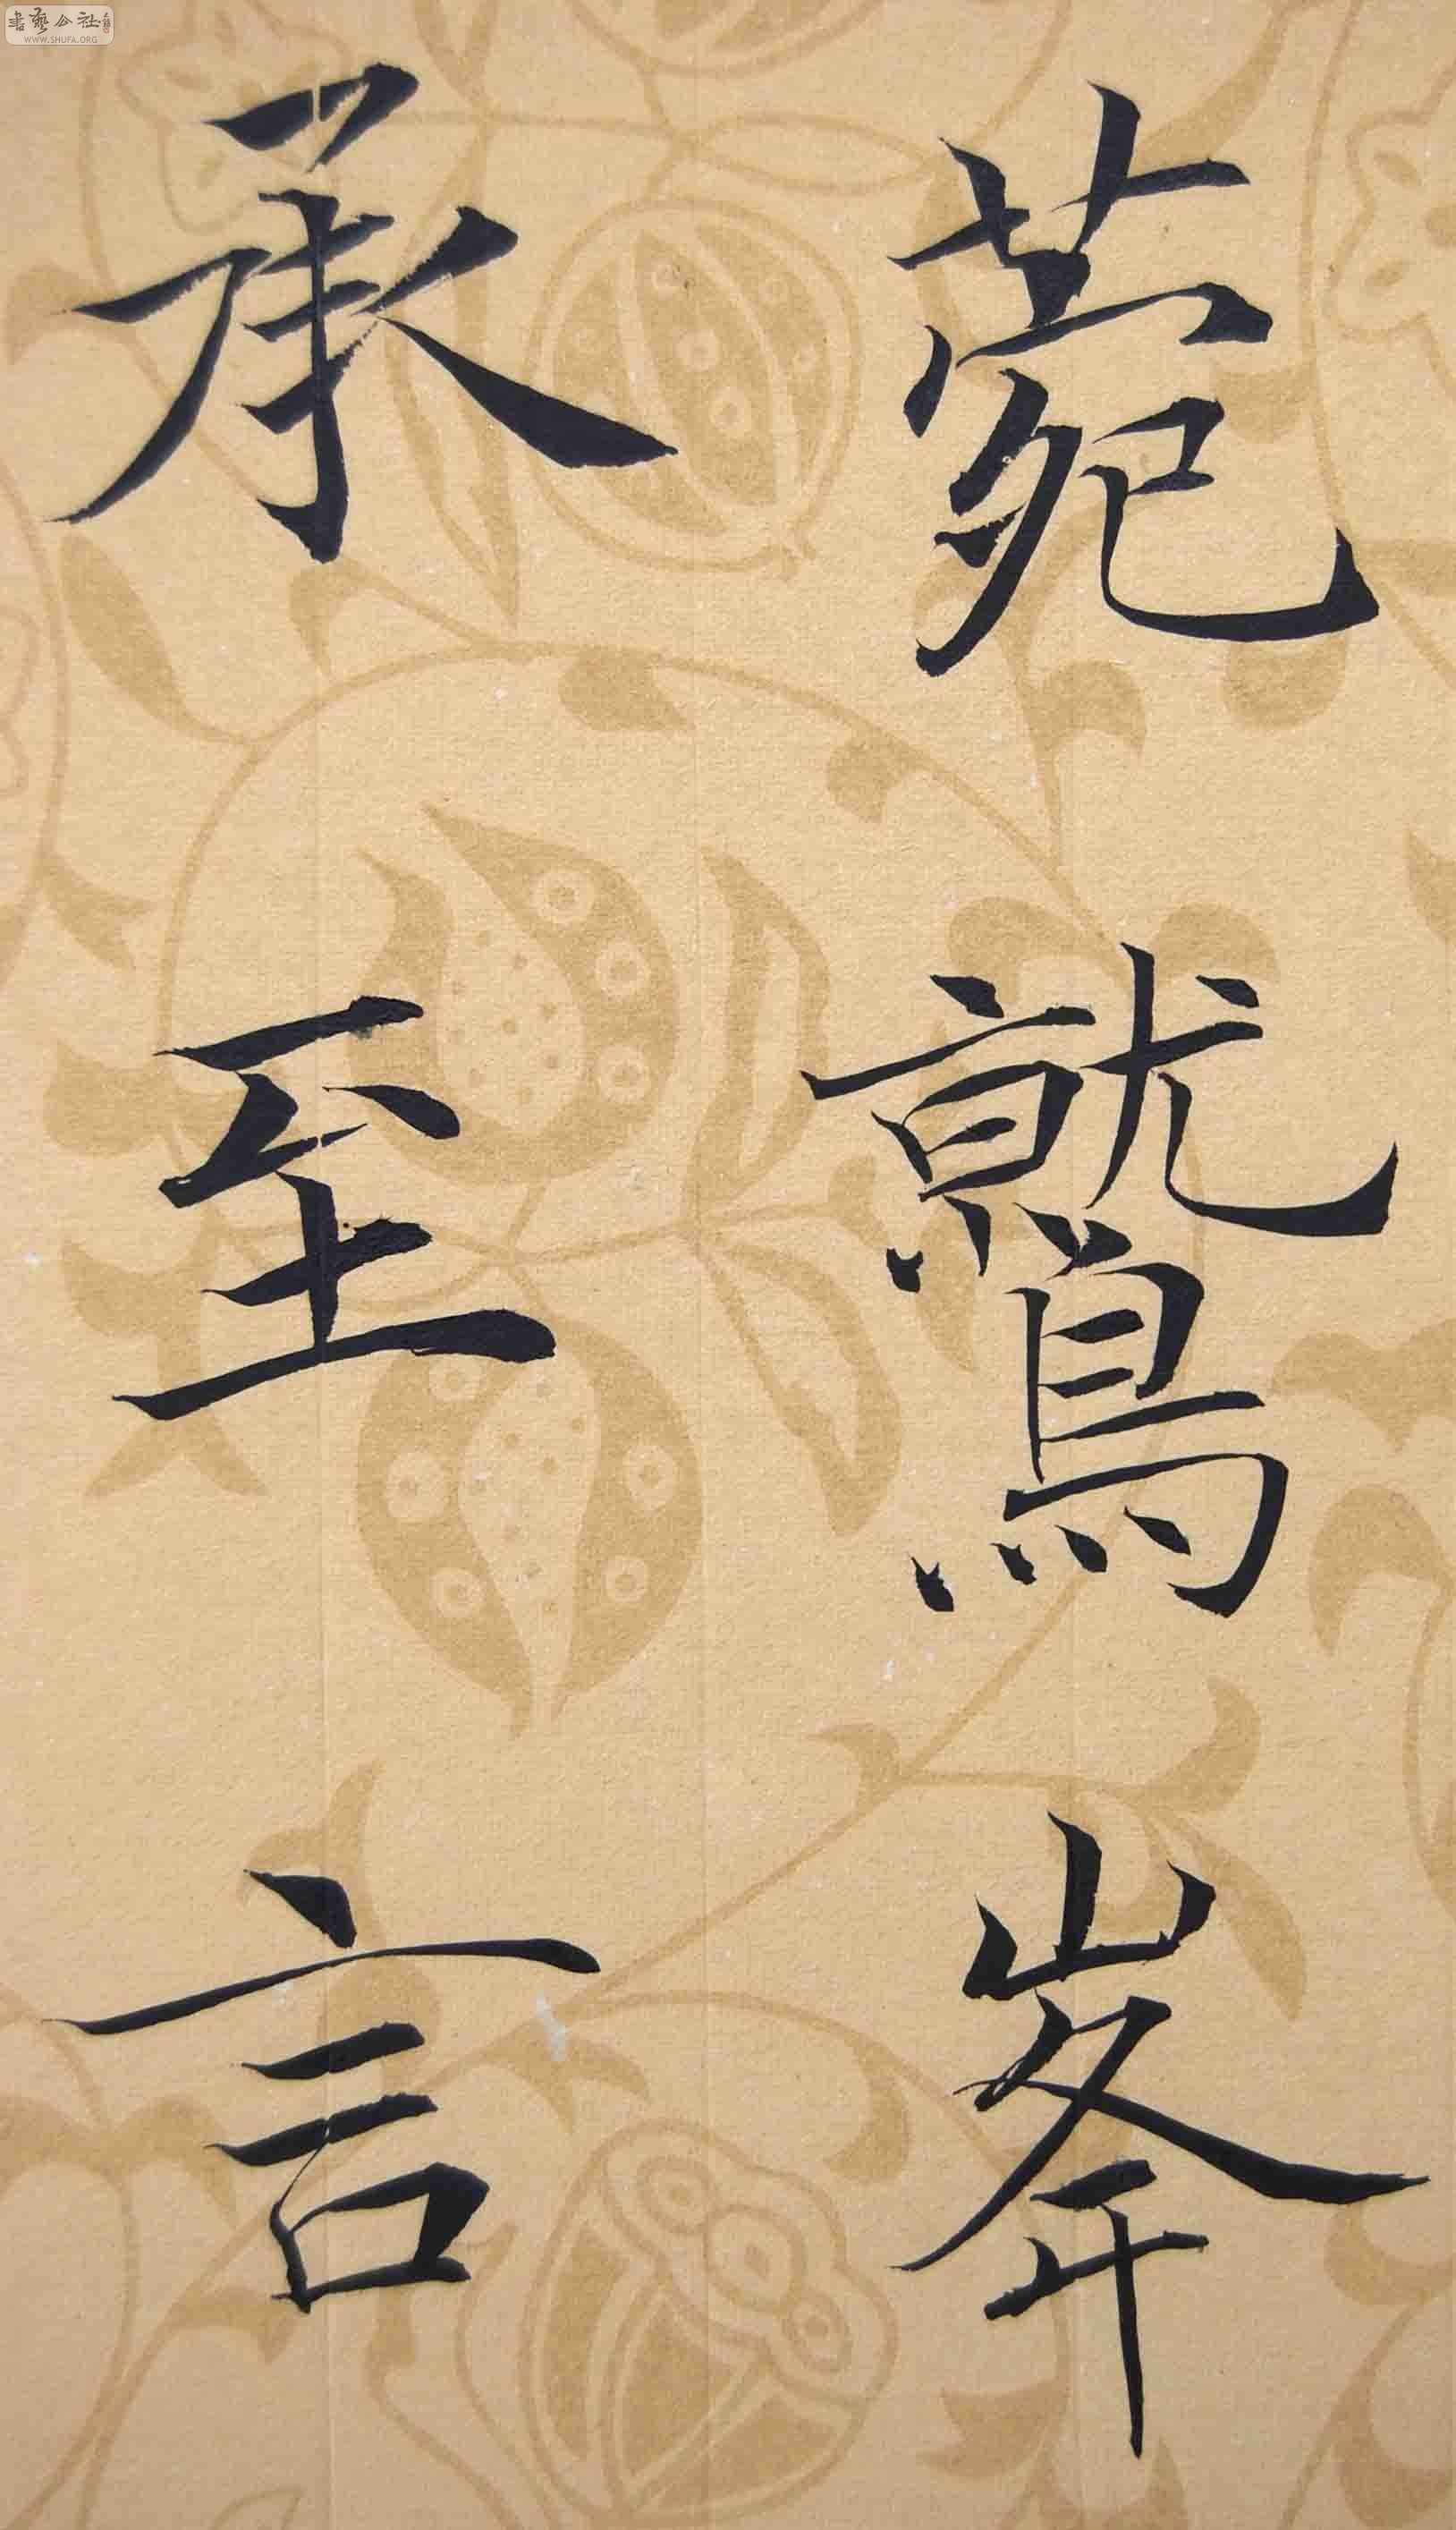 菀鷲峯
承至言
書藝公社
WWW.SHUFA.ORG